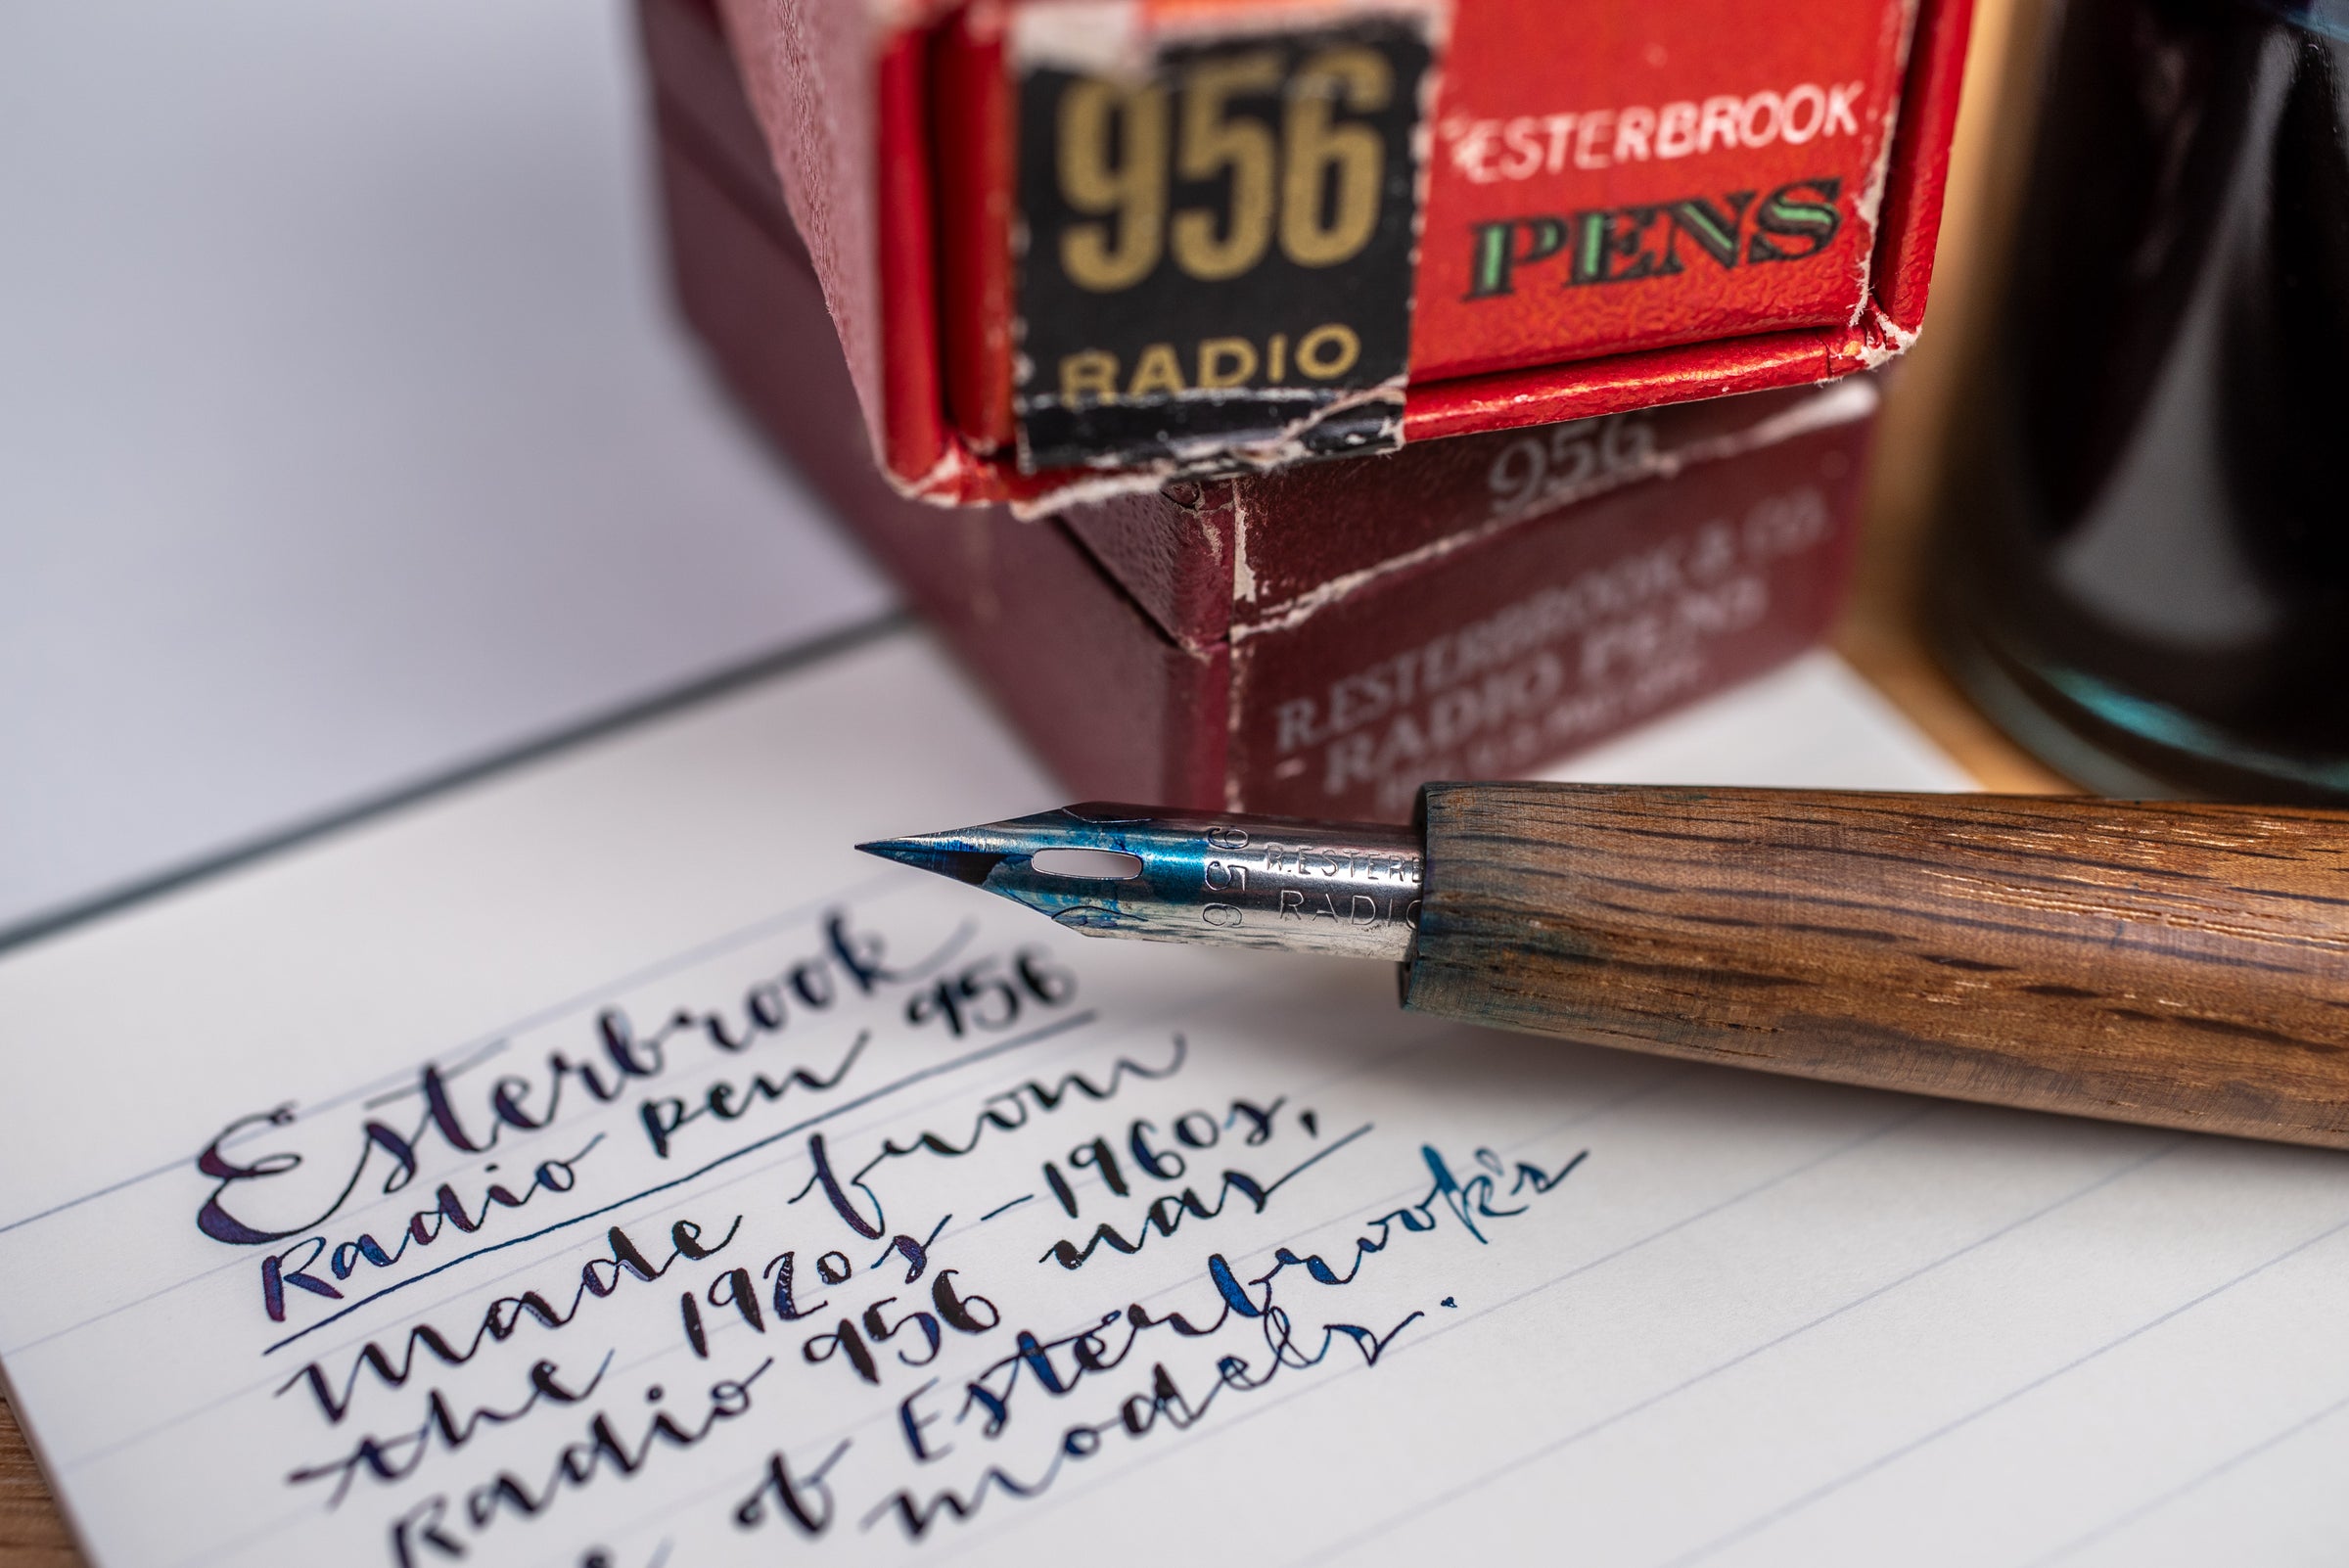 956
RADIO
ESTERBROOK
PENS
956
R.ESTERBROOK & CO
RADIO PENS
956
R.ESTERB
RADIO
Esterbrook
Radio pen 956
made from
the 1920s – 1960s,
Radio 956 was
of Esterbrook's
models.